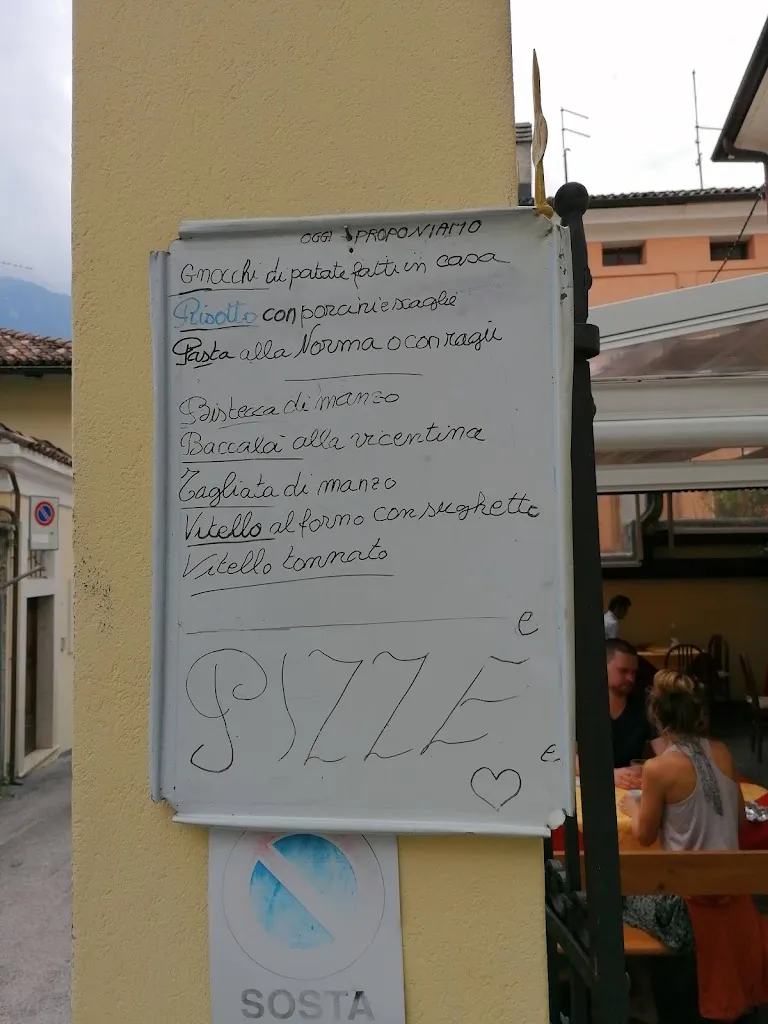 OGGI PROPONIAMO
Gnocchi di patate fatti in casa
Risotto con porcini e scaglie
Pasta alla Norma o con ragù
Bistecca di manzo
Baccalà alla vicentina
Tagliata di manzo
Vitello al forno con sughetto
Vitello tonnato
e
PIZZE
e
SOSTA